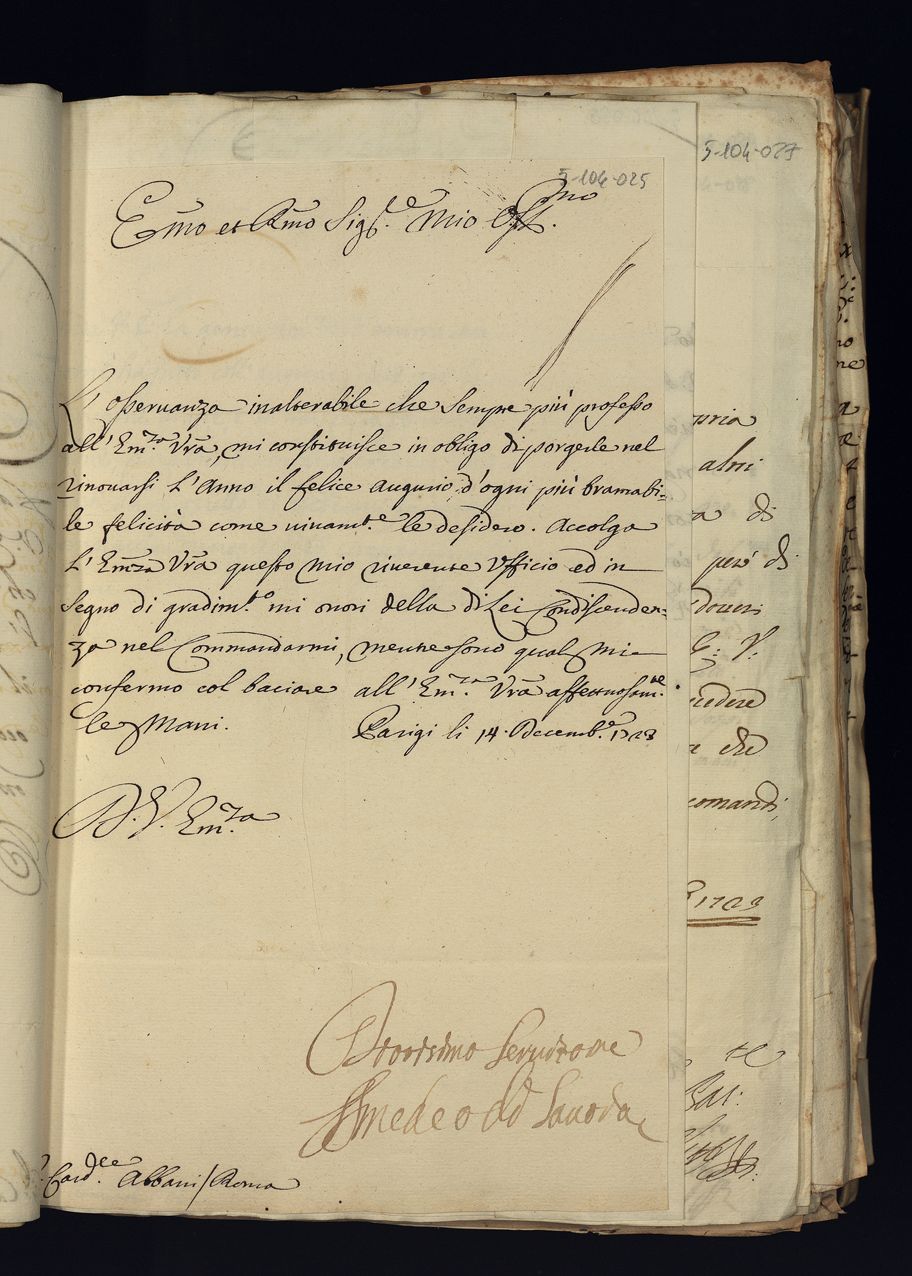 5-104-025
Emo et Rmo Sig.re Mio Oss.mo
L'osservanza inalterabile che sempre più professo
all'Em.za Vrã, mi constituisce in obligo di porgerle nel
rinovarsi L'Anno il felice augurio d'ogni più bramabi=
le felicità come vivam.te le desidero. Accolga
L'Emza Vrã questo mio riverente Ufficio ed in
segno di gradim.to mi onori della di Lei Condiscenden=
za nel Commandarmi, mentre sono qual mi
confermo col baciare all'Em.za Vrã affettuosam.te
le Mani. Parigi li 14. Decemb.e 1723
D. V. Em.za
Divotisimo Servitore
Amedeo di Savoia
Card.le Albani / Roma
5-104-027
altri
di
però di
E: V:
che
comandi,
1723